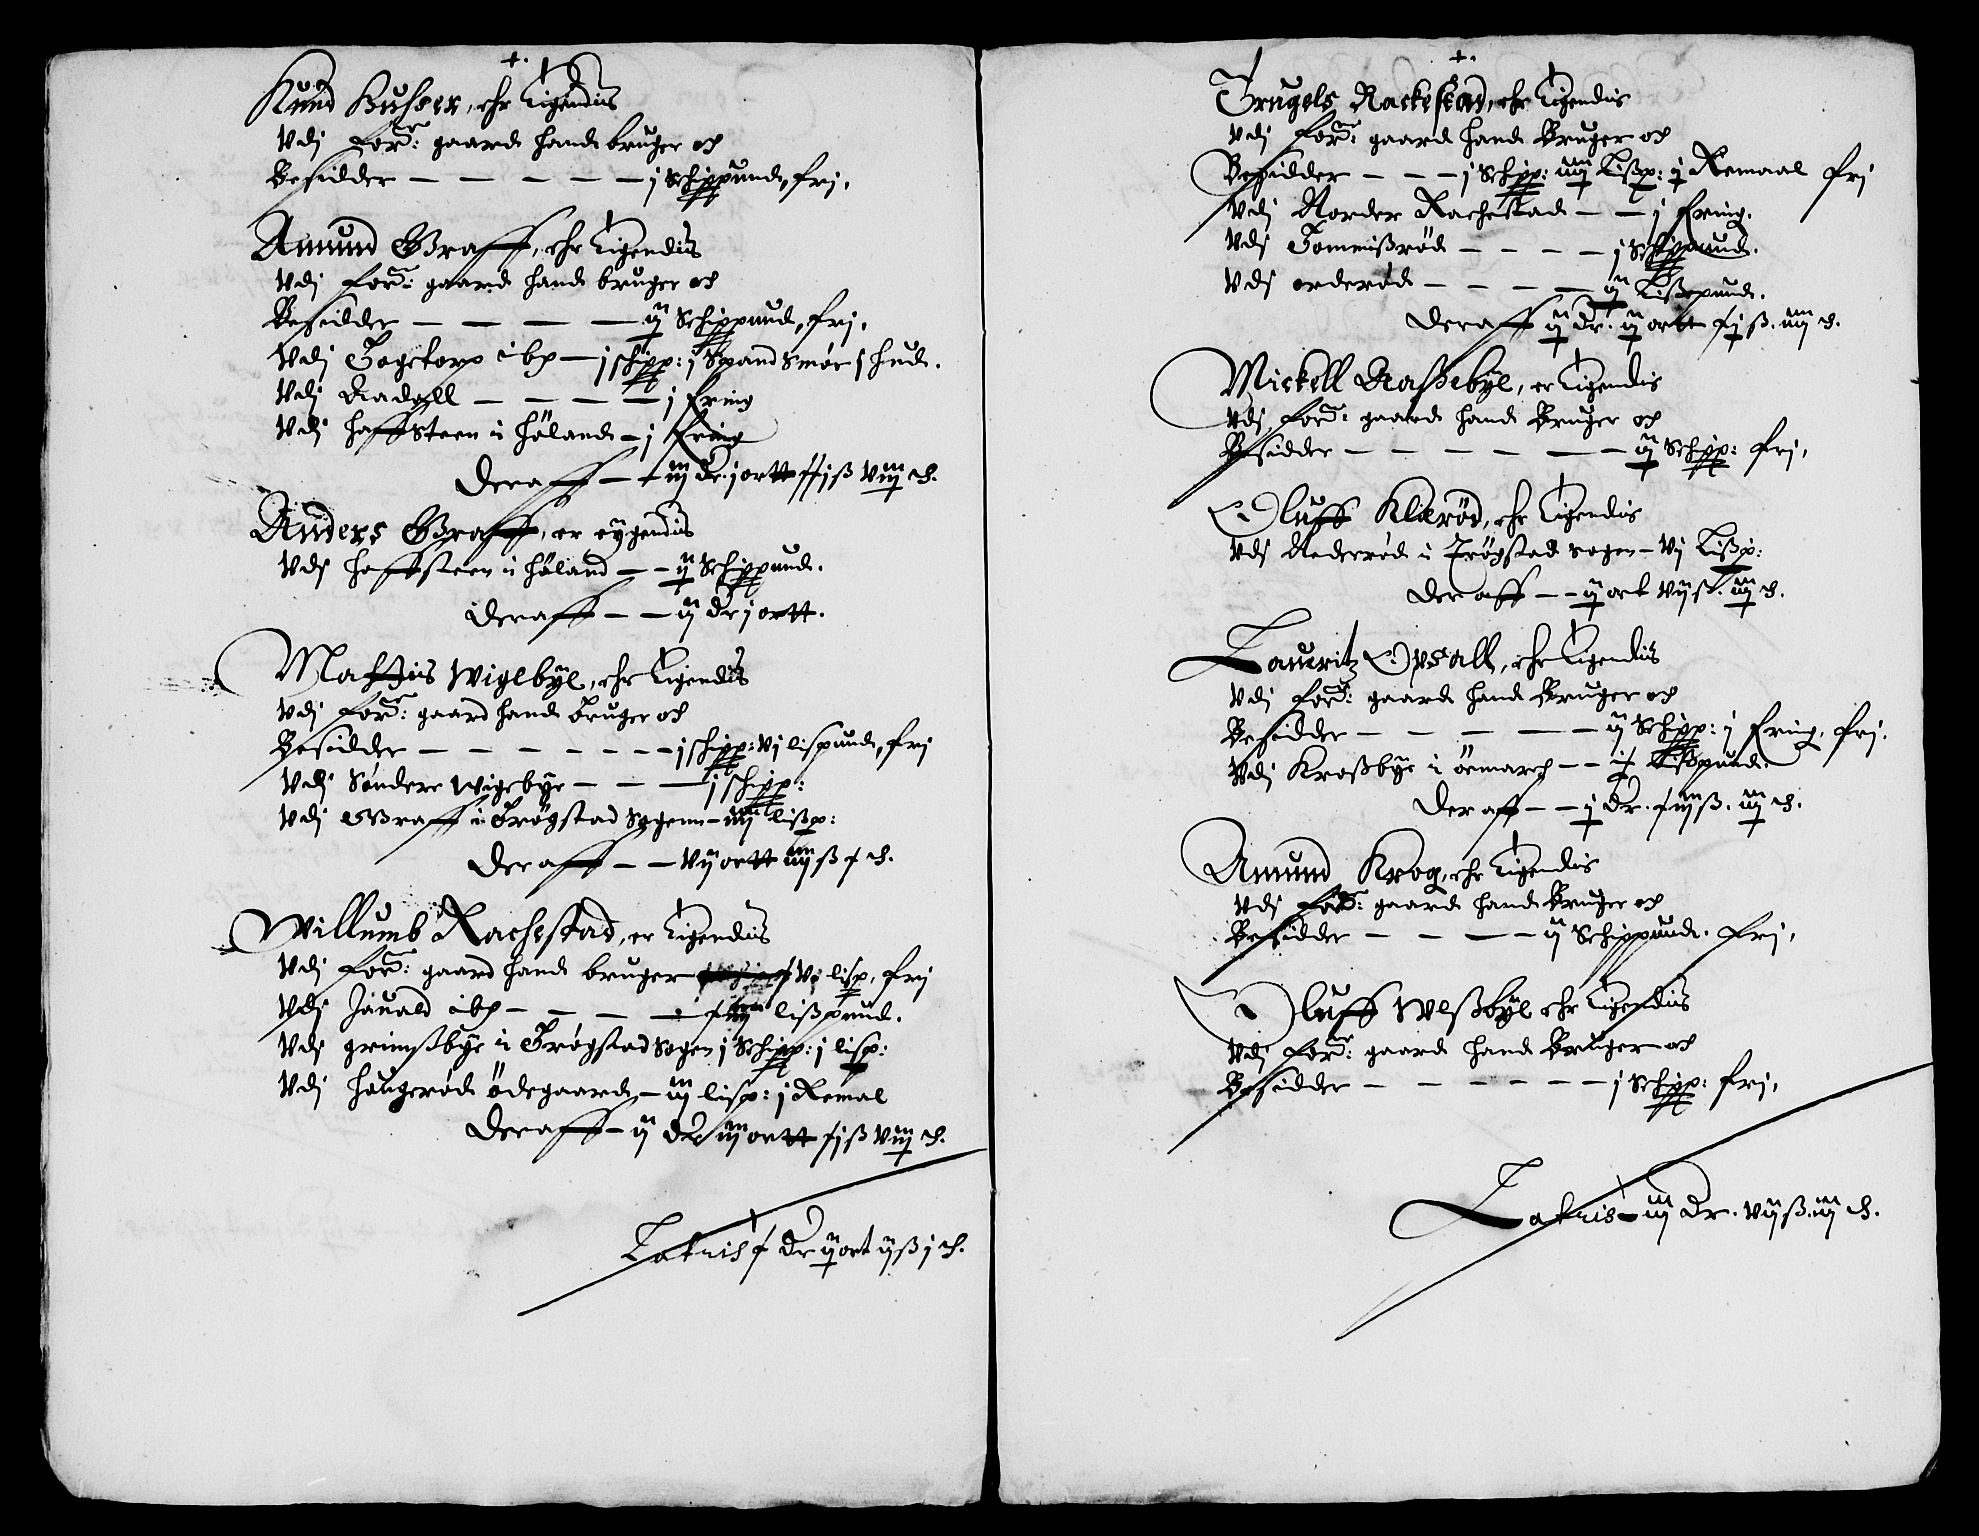 +.
Knud Huser, ehr Eigendis
Vdj for: gaard hand bruger och
Besidder — — — — — j Schippund, frj,
Amund Graff, ehr Eigendis
Vdj for: gaard hand bruger och
Besidder — — — — ij Schippund, frj,
Vdj Togstorp ibh — j schipp: j Spand Smør j hud.
Vdj Radoll — — — — j fring
Vdj haffsteen i Høland — j fring
Deraff — iij dr. j ortt fjß viij ch.
Anders Graff, er eygendis
Vdj haffsteen i Høland — — ij Schippund.
Deraff — — ij dr j ortt.
Mattis Wigebye, ehr Eigendis
Vdj for: gaard hand bruger och
Besidder — — — — — — — j schipp: vj lispund, frj
Vdj Søndere Wigebye — — — j schipp:
Vdj Graff i Trøgstad Sogenn — iiij lißp:
Deraff — — vij ortt iiij ß f ch.
Willumb Rachestad, er Eigendis
Vdj for: gaard hand bruger vj lisp, frj
Vdj Jauald ibh — — — — lißpund.
Vdj grimßbye i Trøgstad Sogen j Schipp: j lisp:
Vdj Haugerød ödegaard — iij lisp: j Remal
Deraff — ij dr iij ortt fjß viij ch.
Latris f dr ij ort ij ß j ch.
+.
Trugels Rackestad, ehr Eigendis
Vdj for: gaard hand Bruger och
Besidder — — — j Schipp: iiij Lißp: j Remaal frj
Vdj Norder Rachestad — — j fring.
Vdj Tommißrød — — — — j Schippund.
Vdj orderød — — — — ij Lißpund.
Deraff ij dr. ij ortt fjß. iiij ch.
Mickell Raßebye, er Eigendis
Vdj for: gaard hand Bruger och
Besidder — — — — — — ij Schipp: frj,
Oluff Klærød, ehr Eigendis
Vdj Nederrød i Trøgstad sogen — vj Lißp:
Deraff — — ij ort vij ß. iij ch.
Lauritz Opsall, ehr Eigendis
Vdj for: gaard hand Bruger och
Besidder — — — — — ij Schipp: j fring, frj.
Vdj Kroßbye i öemarch — — ij Lißpund.
Deraff — — j dr. fiij ß. iij ch.
Amund Krog, ehr Eigendis
Vdj for: gaard hand Bruger och
Besidder — — — — ij Schippund. frj,
Oluff Wlßbye ehr Eigendis
Vdj for: gaard hand Bruger och
Besidder — — — — — — j Schipp: frj,
Latris iij dr. vij ß. iij ch.